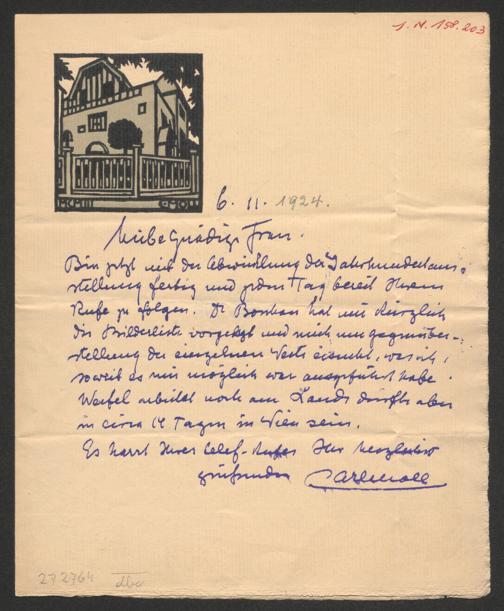 J. N. 158.203
6. 11. 1924.
Liebe gnädige Frau.
Bin jetzt mit der Abwicklung der Jahrhundertaus-
stellung fertig und jeden Tag bereit Ihrem
Rufe zu folgen. Dr Bonban hat mir kürzlich
die Bilderliste vorgelegt und mich um gegenüber-
stellung der einzelnen Werte ersucht, was ich,
soweit es mir möglich war ausgeführt habe.
Werfel arbeitet noch am Lande dürfte aber
in circa 14 Tagen in Wien sein.
Es harrt Ihres Telef-Rufes Ihr herzlichst
grüßender Carl Moll
272764